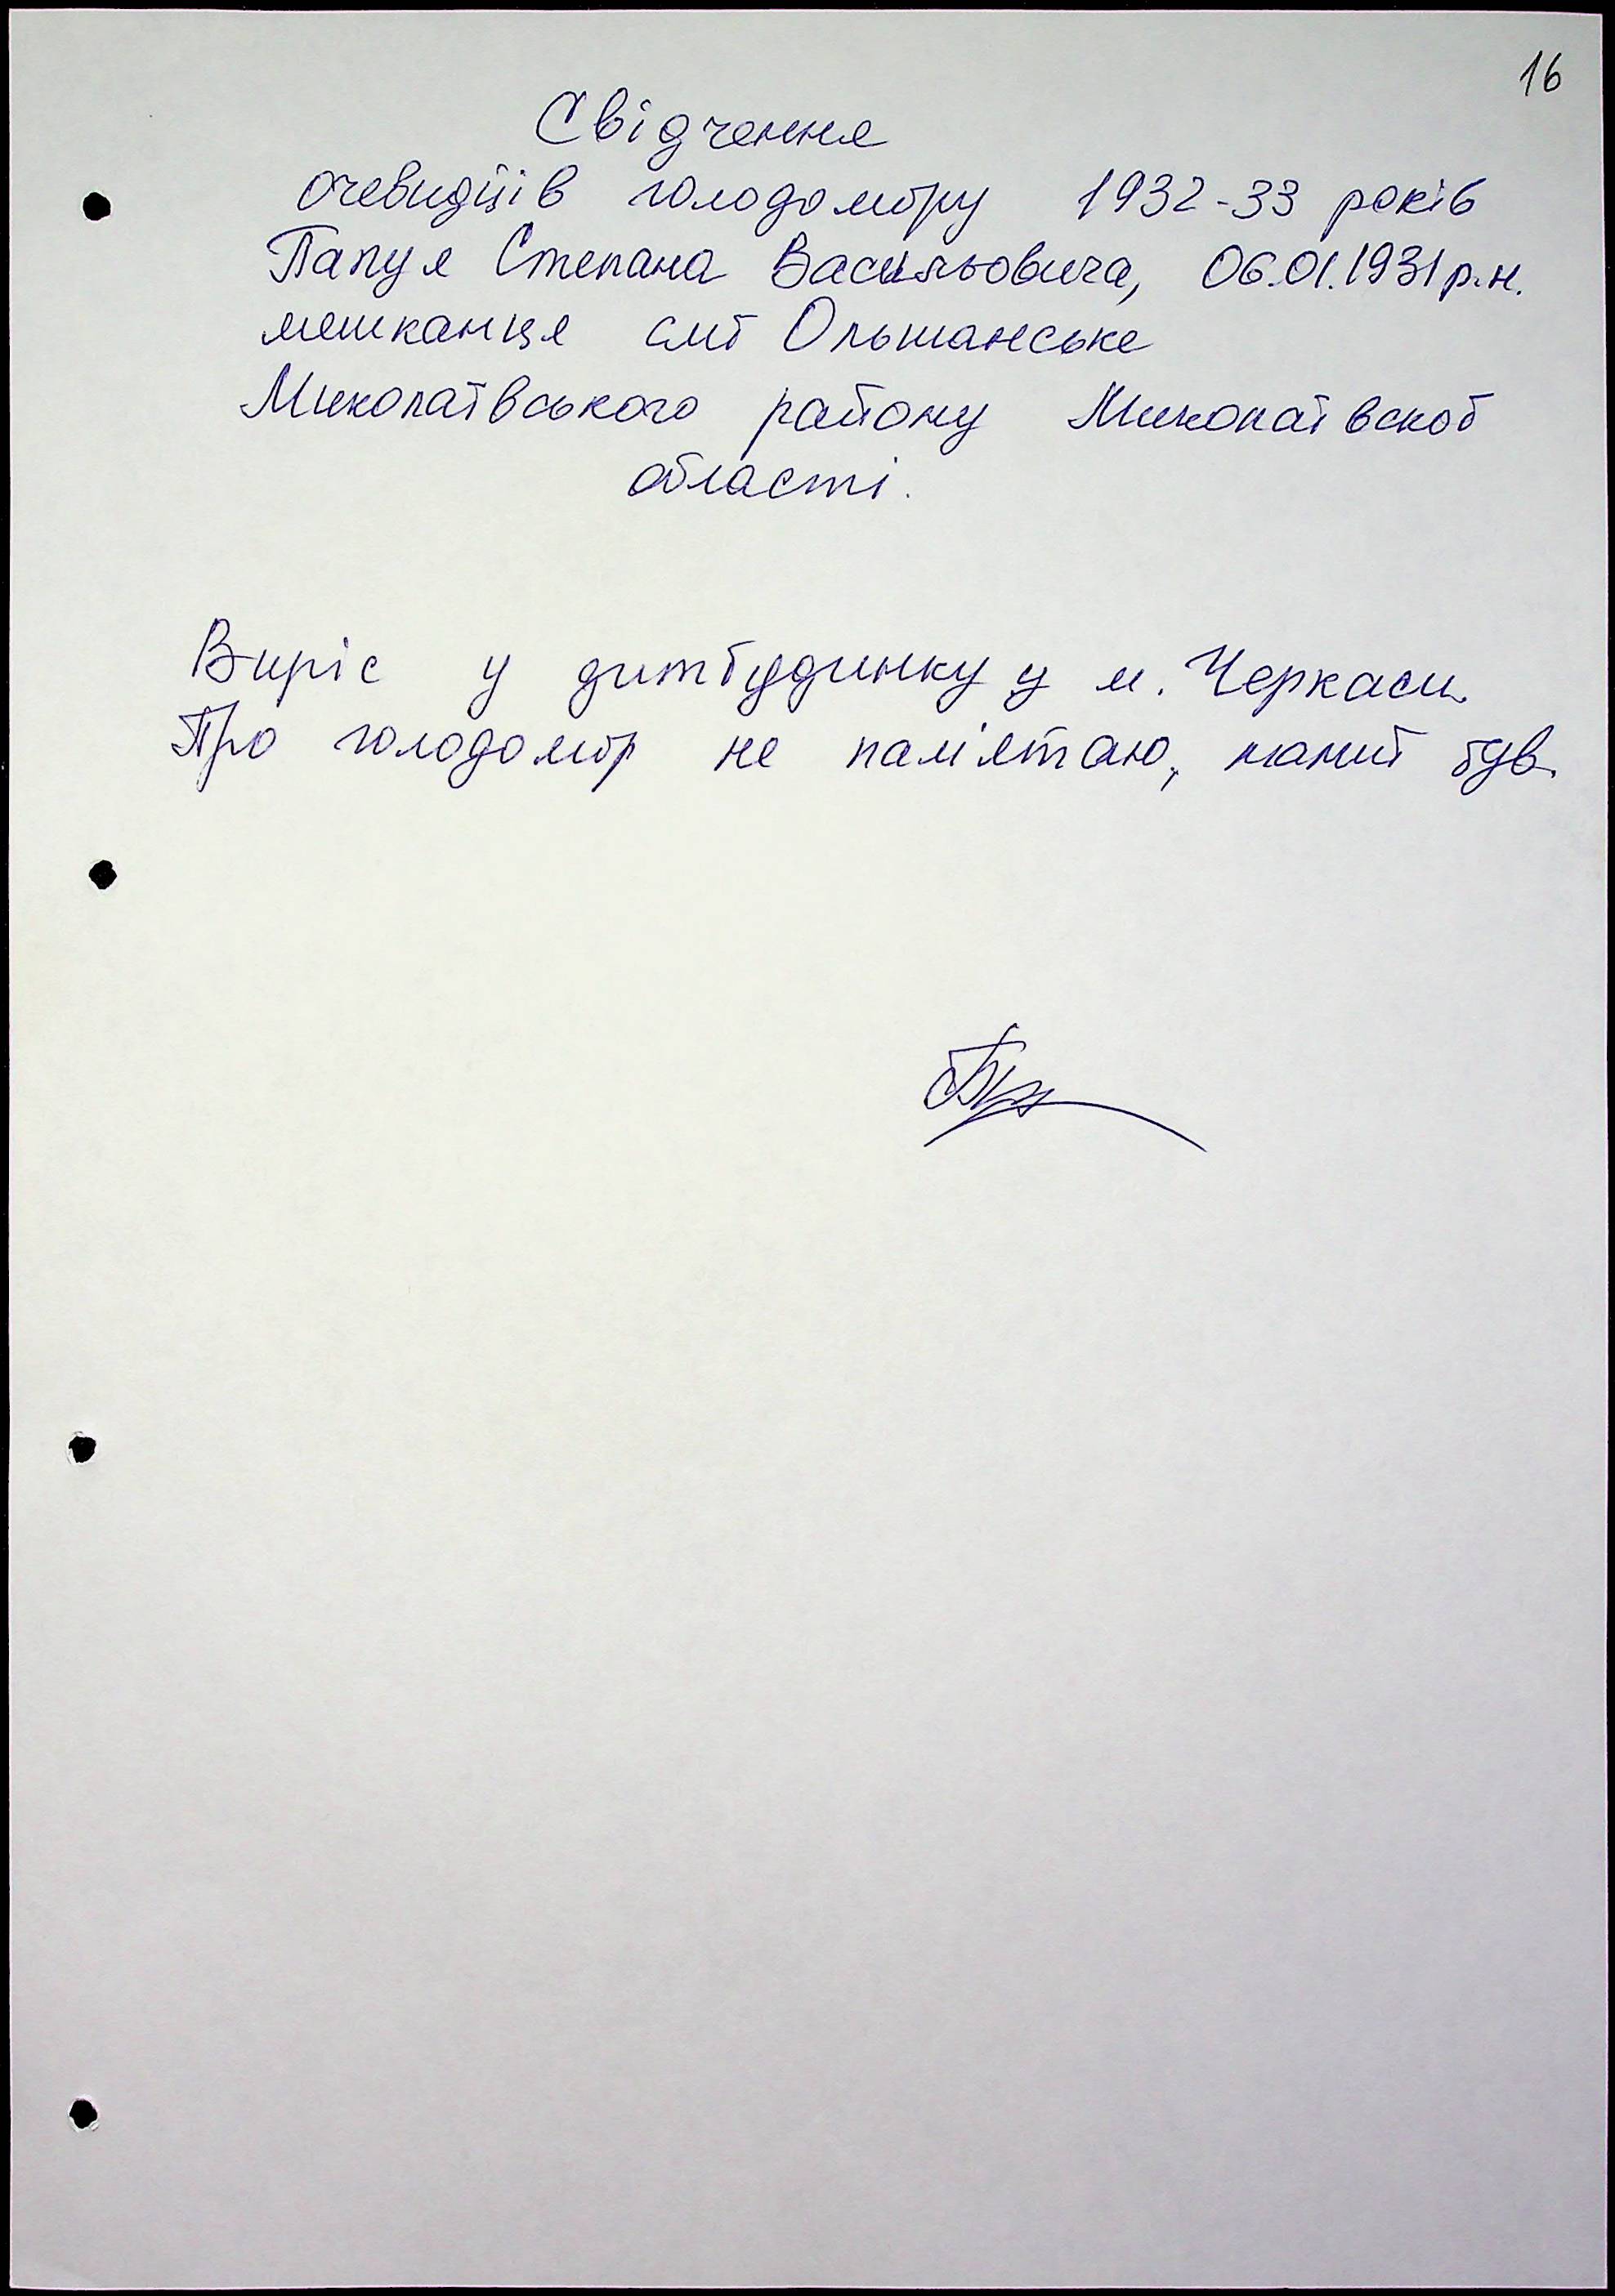 16
Свідчення
очевидців голодомору 1932-33 років
Папуя Степана Васильовича, 06.01.1931р.н.
мешканця смт Ольшанське
Миколаївського району Миколаївскої
області.
Виріс у дитбудинку у м. Черкаси.
Про голодомор не пам'ятаю, малий був.